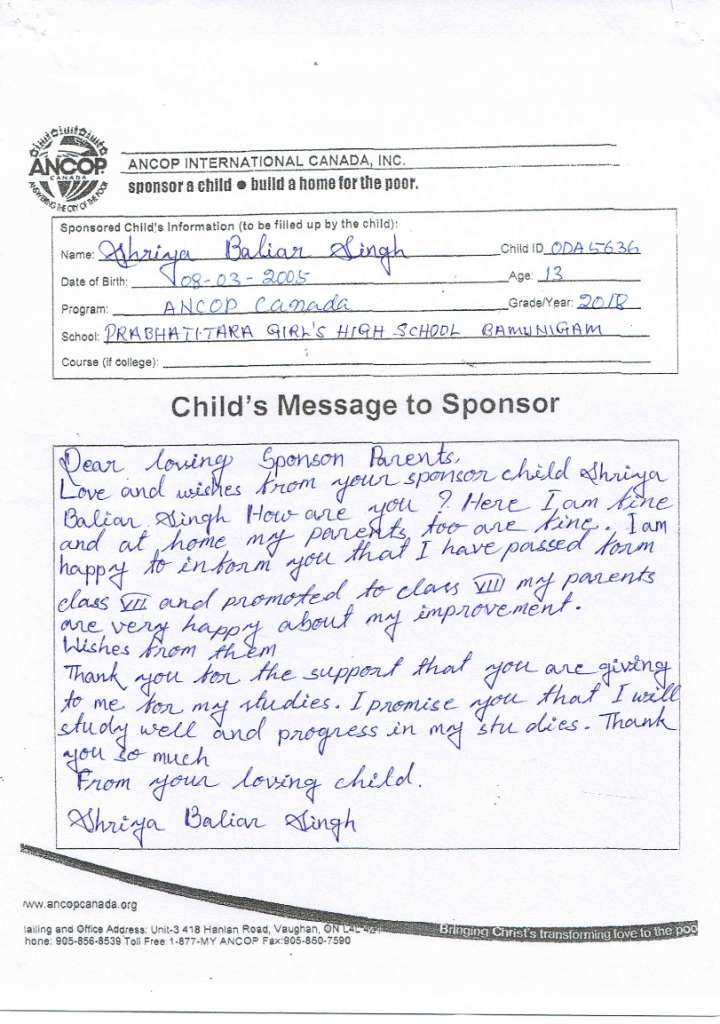 ANCOP
CANADA
ANSWERING THE CRY OF THE POOR
ANCOP INTERNATIONAL CANADA, INC.
sponsor a child ● build a home for the poor.
Sponsored Child's Information (to be filled up by the child):
Name: Shriya Baliar Singh Child ID ODA5636
Date of Birth: 08-03-2005 Age: 13
Program: ANCOP Canada Grade/Year: 2018
School: PRABHATI-TARA GIRL'S HIGH SCHOOL BAMUNIGAM
Course (if college):
Child's Message to Sponsor
Dear loving Sponson Parents,
Love and wishes from your sponsor child Shriya
Baliar Singh How are you ? Here I am fine
and at home my parents too are fine. I am
happy to inform you that I have passed form
class VII and promoted to class VIII my parents
are very happy about my improvement.
Wishes from them
Thank you for the support that you are giving
to me for my studies. I promise you that I will
study well and progress in my stu dies. Thank
you so much
From your loving child.
Shriya Baliar Singh
www.ancopcanada.org
ailing and Office Address: Unit-3 418 Hanlan Road, Vaughan, ON L4L
hone: 905-856-8539 Toll Free 1-877-MY ANCOP Fax:905-850-7590
Bringing Christ's transforming love to the poo